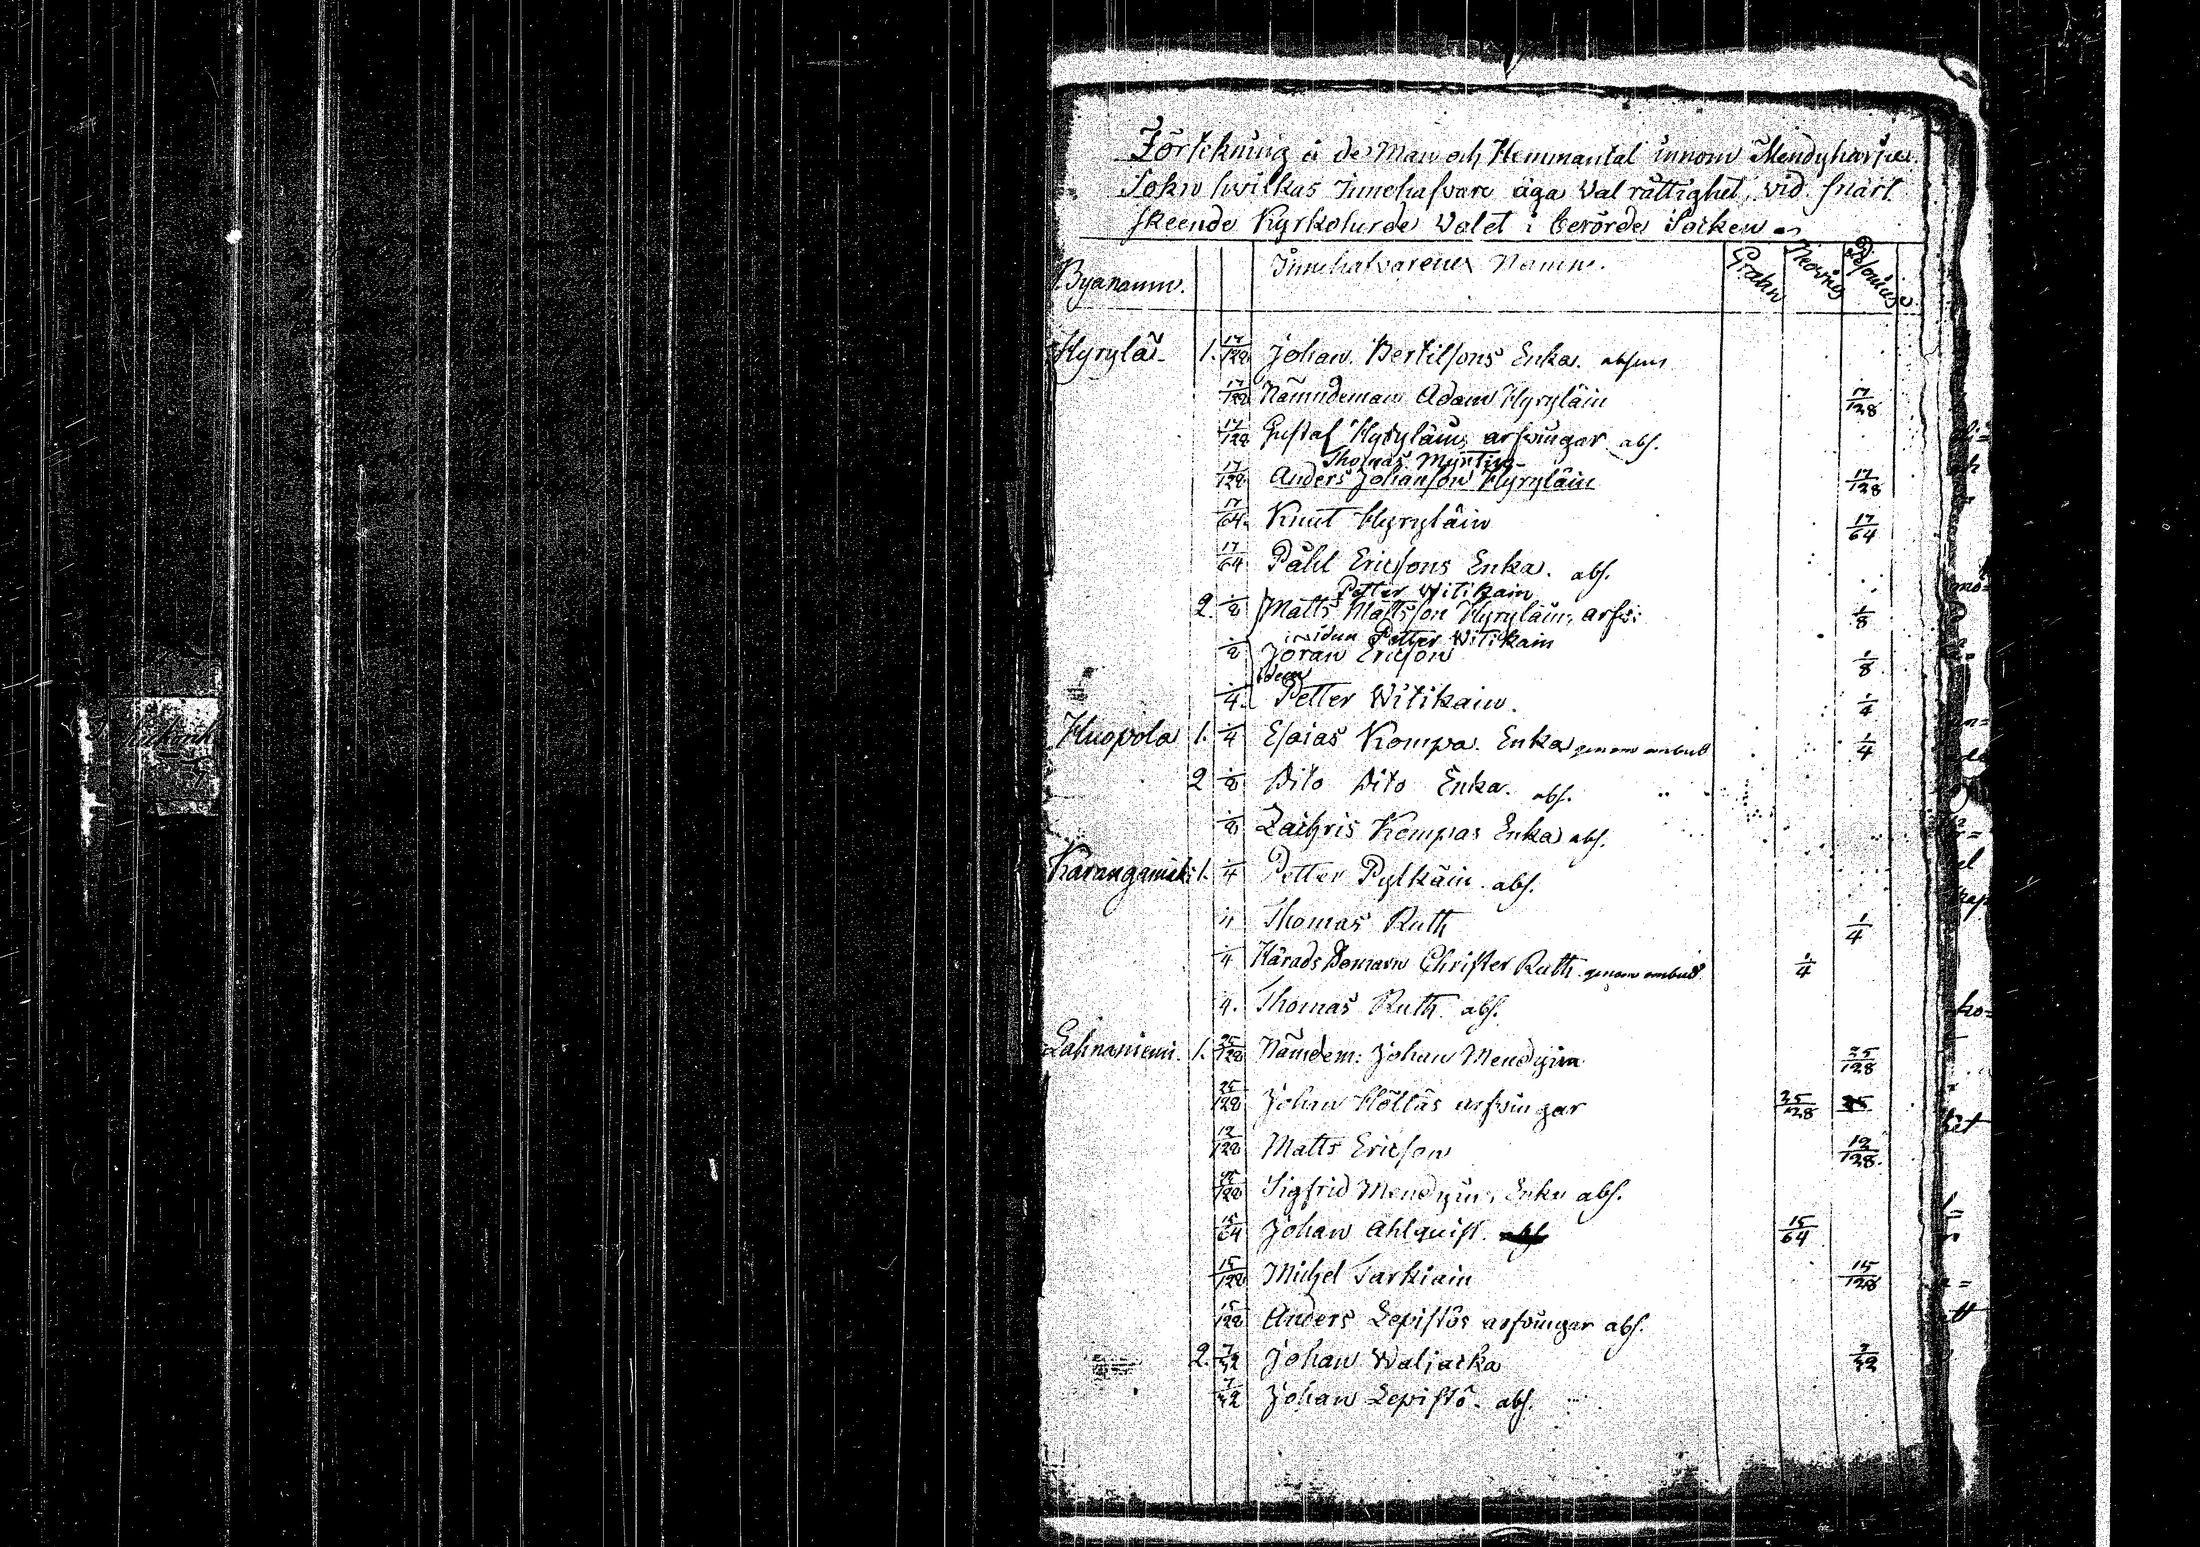 Förtekning å de Man och Hemmantal innom Mendyharju
Sokn hwilkas Innehafvare äga Val rättighet, vid snart
skeende Kyrkoherde Valet i berörde Socken
Byanamn. Innehafvarenes Namn. Grahn Heoring
Hyrylä 1. 17/128 Johan Bertilsons Enka. absens
17/128 Nämndeman Adam Hyryläin 17/128
17/128 Gustaf Hyryläins arfvingar abs.
Thomas Myntin
17/128 Anders Johanson Hyryläin 17/128
17/64. Knut Hyryläin 17/64
17/64 Påhl Ericsons Enka. abs.
Petter Witikain
2. 1/8 Matts Mattsson Hyryläins arfv: 1/8
Petter Witikain
1/8 Jöran Ericson 1/8
idem
1/4. Petter Witikain. 1/4
Huopola 1. 1/4 Esaias Kompa. Enka genom ombud 1/4
2 1/8 Dito Dito Enka. abs.
1/8 Zachris Kompas Enka abs.
Karangamäki 1. 1/4 Petter Pylkäin abs.
1/4 Thomas Ruth 1/4
1/4 Härads Domarn Christer Ruth genom ombud 1/4
4. Thomas Ruth abs.
Lahnaniemi. 1. 25/128 Nämdem: Johan Mendyin 25/128
25/128 Johan Höltäs arfvingar 25/128
12/128 Matts Ericson 12/128.
Sigfrid Mendyins Enka abs.
15/64 Johan Ahlquist. 15/64
15/128 Michel Tarkiain 15/128
15/128 Anders Lepistös arfvingar abs.
2. 7/32 Johan Waljacka 7/32
7/32 Johan Lepistö. abs.